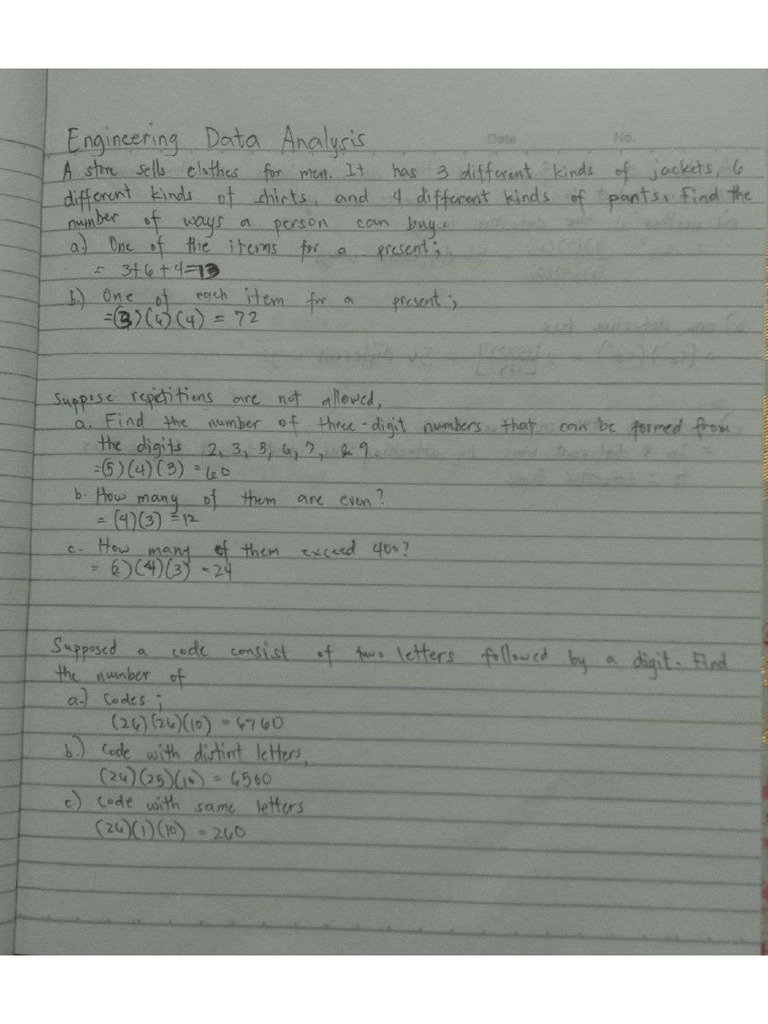 Date No.
Engineering Data Analysis
A store sells clothes for men. It has 3 different kinds of jackets, 6
different kinds of shirts, and 4 different kinds of pants. Find the
number of ways a person can buy:
a.) One of the items for a present;
= 3+6+4=13
b.) One of each item for a present;
=(3)(6)(4) = 72
Suppose repetitions are not allowed,
a. Find the number of three-digit numbers that can be formed from
the digits 2, 3, 5, 6, 7, & 9.
=(5)(4)(3) = 60
b. How many of them are even?
= (4)(3) = 12
c. How many of them exceed 400?
= 2)(4)(3) = 24
Supposed a code consist of two letters followed by a digit. Find
the number of
a.) codes;
(26)(26)(10) = 6760
b.) code with distint letters,
(26)(25)(10) = 6500
c) code with same letters
(26)(1)(10) = 260